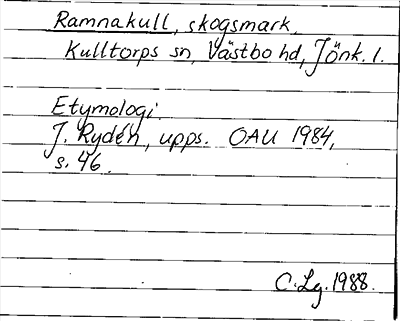 Ramnakull, skogsmark,
Kulltorps sn, Västbo hd, Jönk. l.
Etymologi.
J. Rydén, upps. OAU 1984,
s. 46.
C. Lg. 1988.